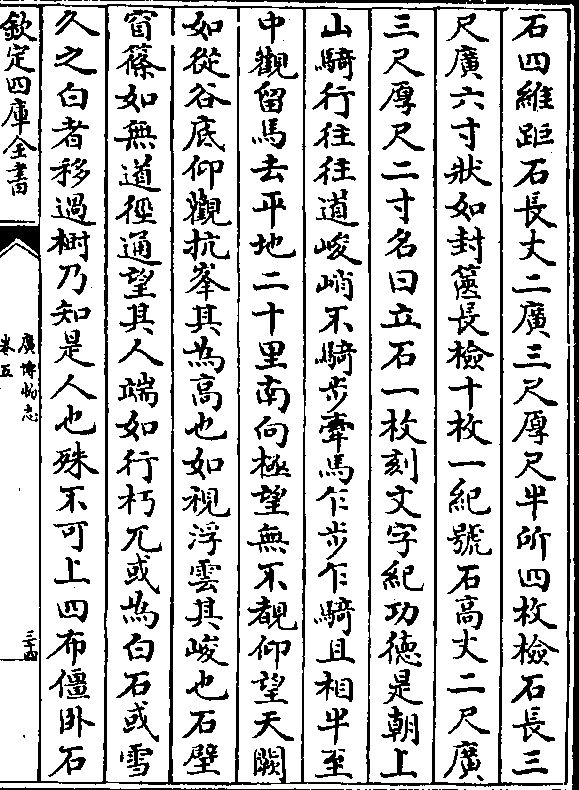 石四維距石長丈二廣三尺厚尺半所四枚檢石長三
尺廣六寸狀如封篋長檢十枚一紀號石高丈二尺廣
三尺厚尺二寸名曰立石一枚刻文字紀功徳是朝上
山騎行往往道峻峭不騎步牽馬乍步乍騎且相半至
中觀留馬去平地二十里南向極望無不覩仰望天闕
如從谷底仰觀抗峯其為高也如視浮雲其峻也石壁
窅篠如無道徑遥望其人端如行朽兀或為白石或雪
久之白者移過樹乃知是人也殊不可上四布僵卧石
欽定四庫全書
廣博物志
卷五
三十四